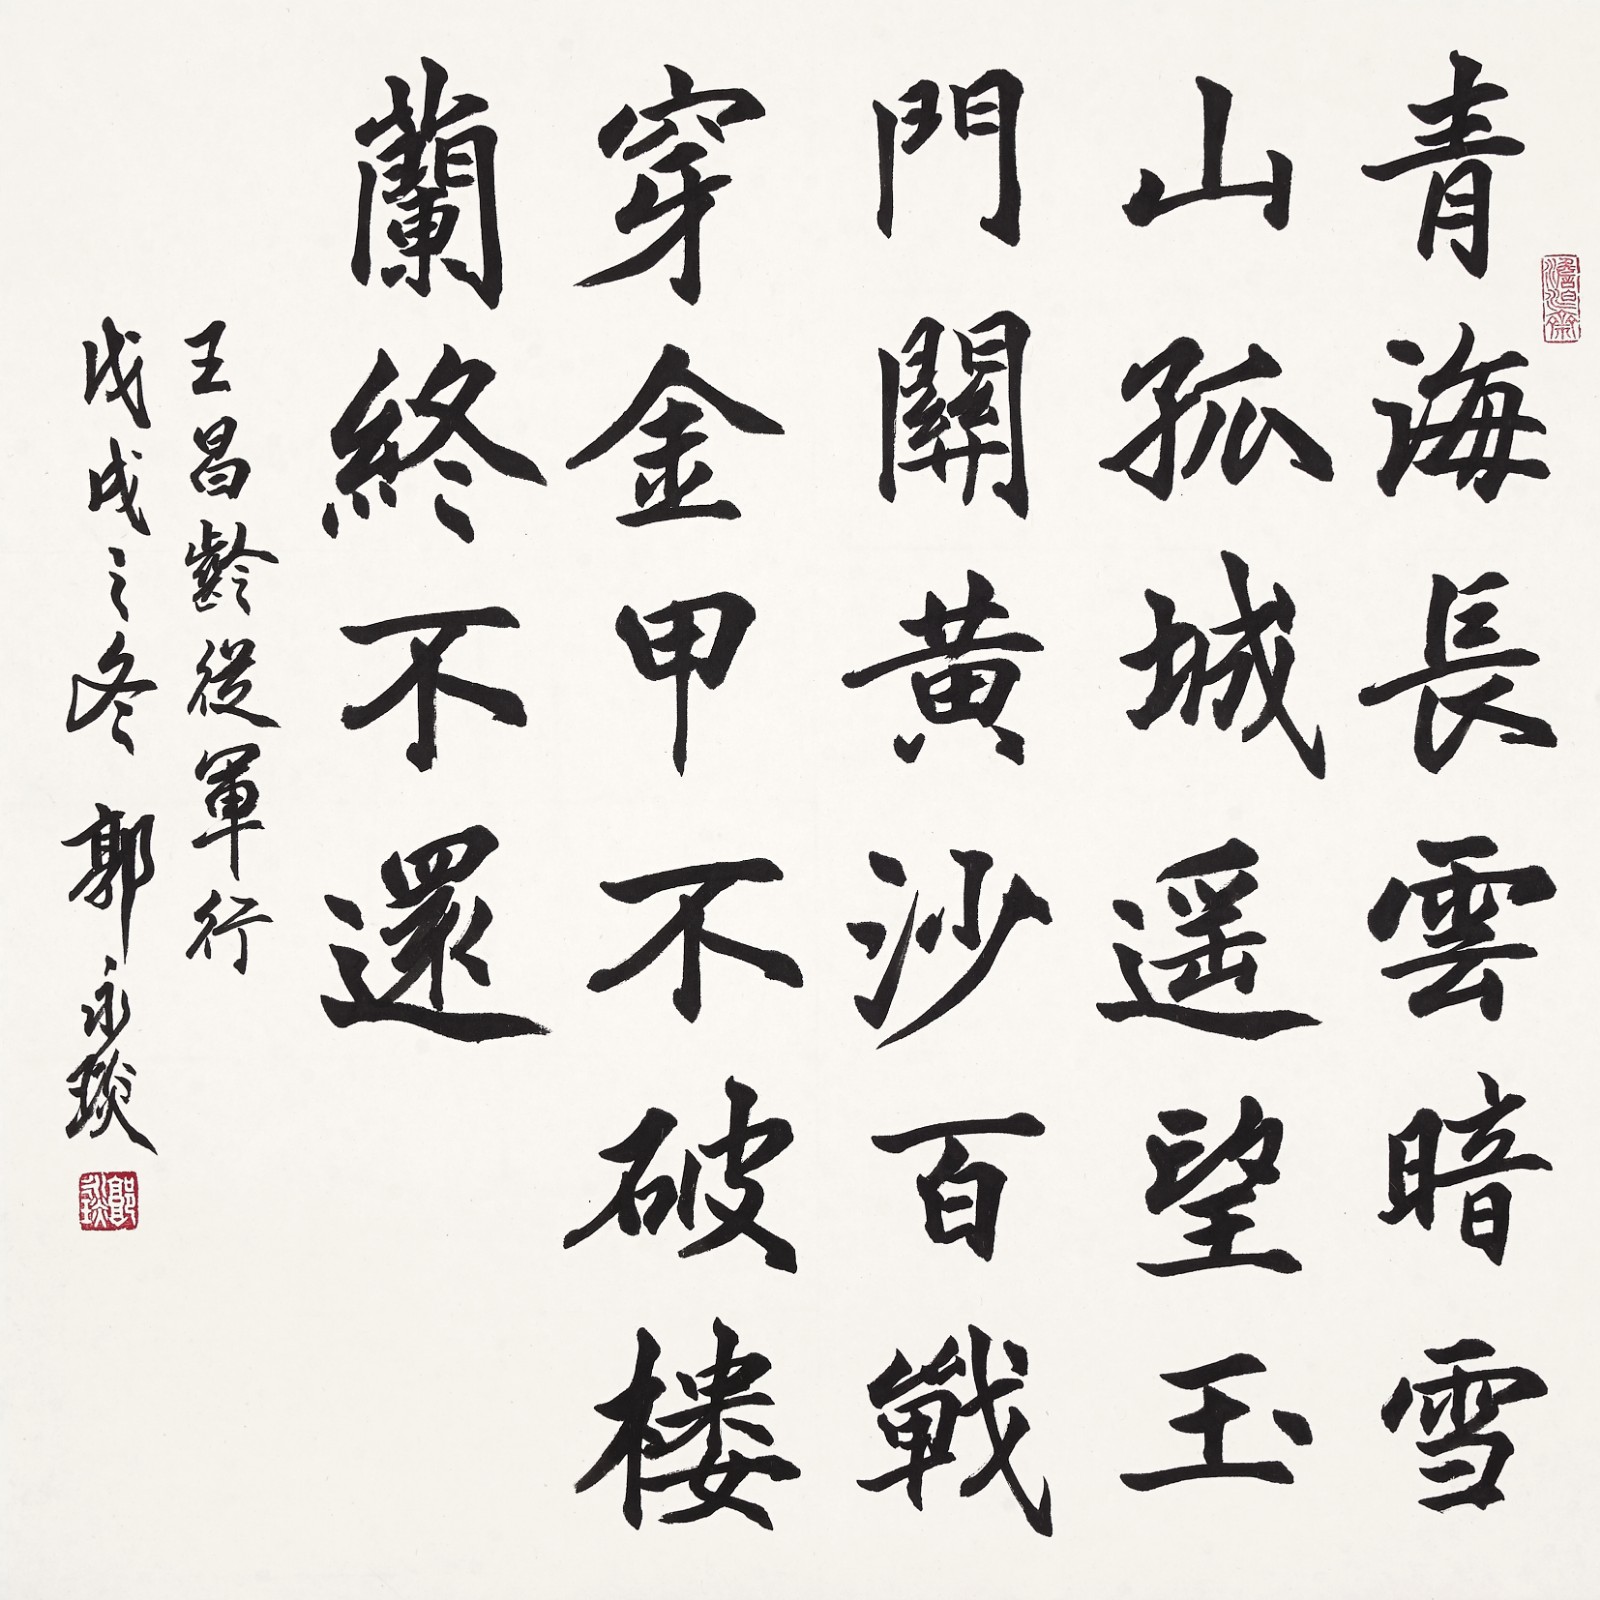 青海長雲暗雪
山孤城遥望玉
門關黃沙百戰
穿金甲不破樓
蘭終不還
王昌齡從軍行
戊戌之冬 郭永琰
郭永琰